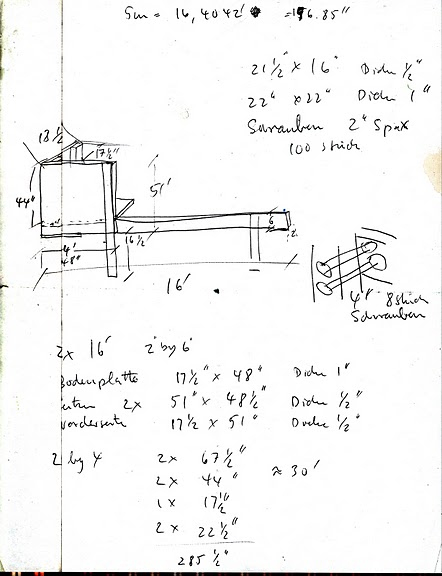 5m = 16,4042' = 196.85"
21 1/2" x 16" Dicke 1/2"
22" x 22" Dicke 1"
Schrauben 2" Spax
100 stück
18 1/2
17 1/2"
44"
51'
4'
48"
16 1/2
6
2
16'
4" 8 stück
Schrauben
2x 16' 2" by 6"
Bodenplatte 17 1/2" x 48" Dicke 1"
2x 51" x 48 1/2" Dicke 1/2"
Vorderseite 17 1/2 x 51" Dicke 1/2"
2 by 4 2x 67 1/2"
2x 44"
≈ 30'
1x 17 1/2"
2x 22 1/2"
285 1/2"